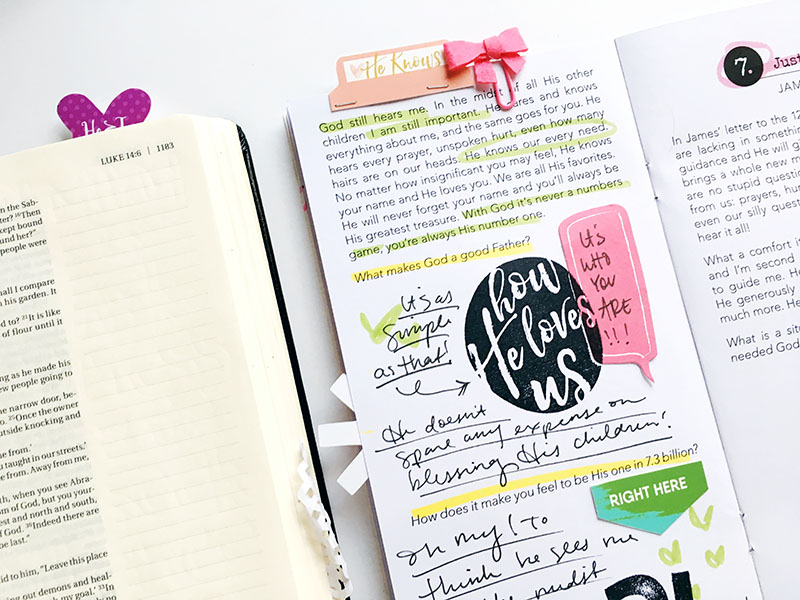 He & I
LUKE 14:6 | 1183
n the Sab-
ter? ¹⁶Then
cept bound
und her?"
people were
all I compare
his garden. It
d to? ²¹It is like
of flour until it
ing as he made his
ew people going to
e narrow door, be-
o. ²⁵Once the owner
utside knocking and
e from.'
u taught in our streets.'
e from. Away from me,
th, when you see Abra-
om of God, but you your-
est and north and south,
of God. ³⁰Indeed there are
be last."
id to him, "Leave this place
ing out demons and heal-
ck my goal.' ³³In
He Knows
God still hears me. In the midst of all His other
children I am still important. He cares and knows
everything about me, and the same goes for you. He
hears every prayer, unspoken hurt, even how many
hairs are on our heads. He knows our every need.
No matter how insignificant you may feel, He knows
your name and He loves you. We are all His favorites.
He will never forget your name and you'll always be
His greatest treasure. With God it's never a numbers
game, you're always His number one.
What makes God a good Father?
it's as
simple
as that!
how
He loves
us
it's
who
you
are
!!!
He doesn't
spare any expense on
blessing His children!
How does it make you feel to be His one in 7.3 billion?
RIGHT HERE
oh my! to
think he sees me
7. Just
JAM
In James' letter to the 12
are lacking in somethin
guidance and He will gi
brings a whole new m
are no stupid questio
from us: prayers, hur
even our silly questio
hear it all!
What a comfort i
and I'm second
to guide me. He
He generously
much more. He
What is a situ
needed God